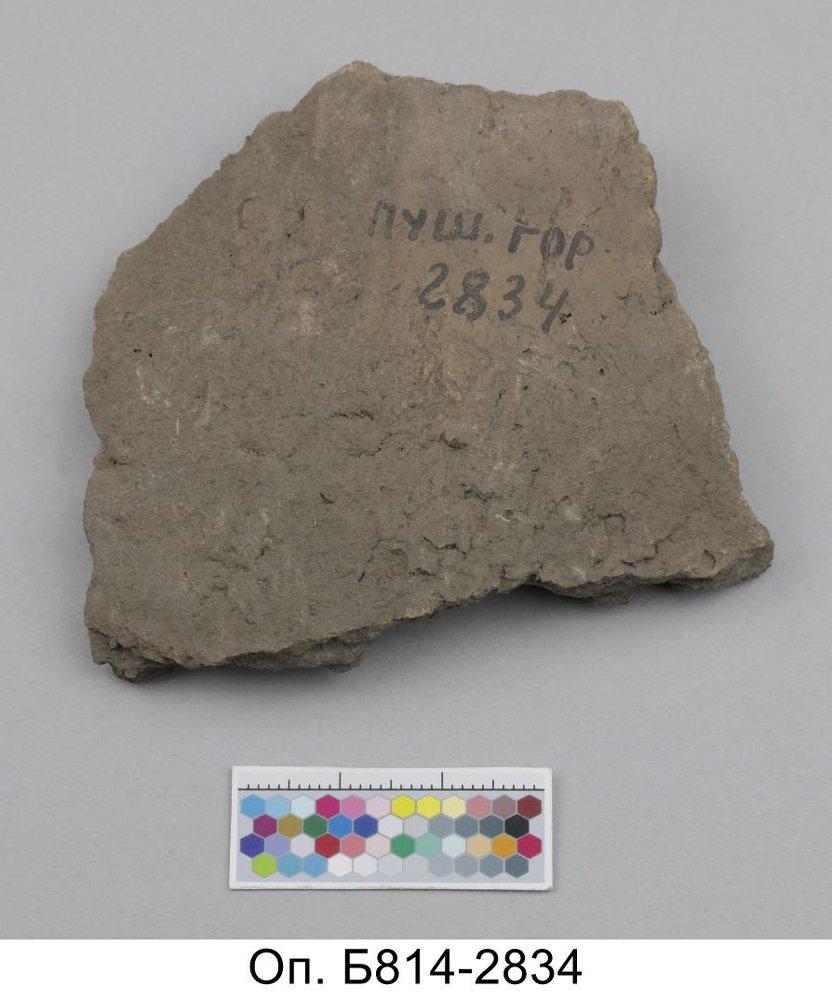 ПУШ. ГОР.
2834
Оп. Б814-2834